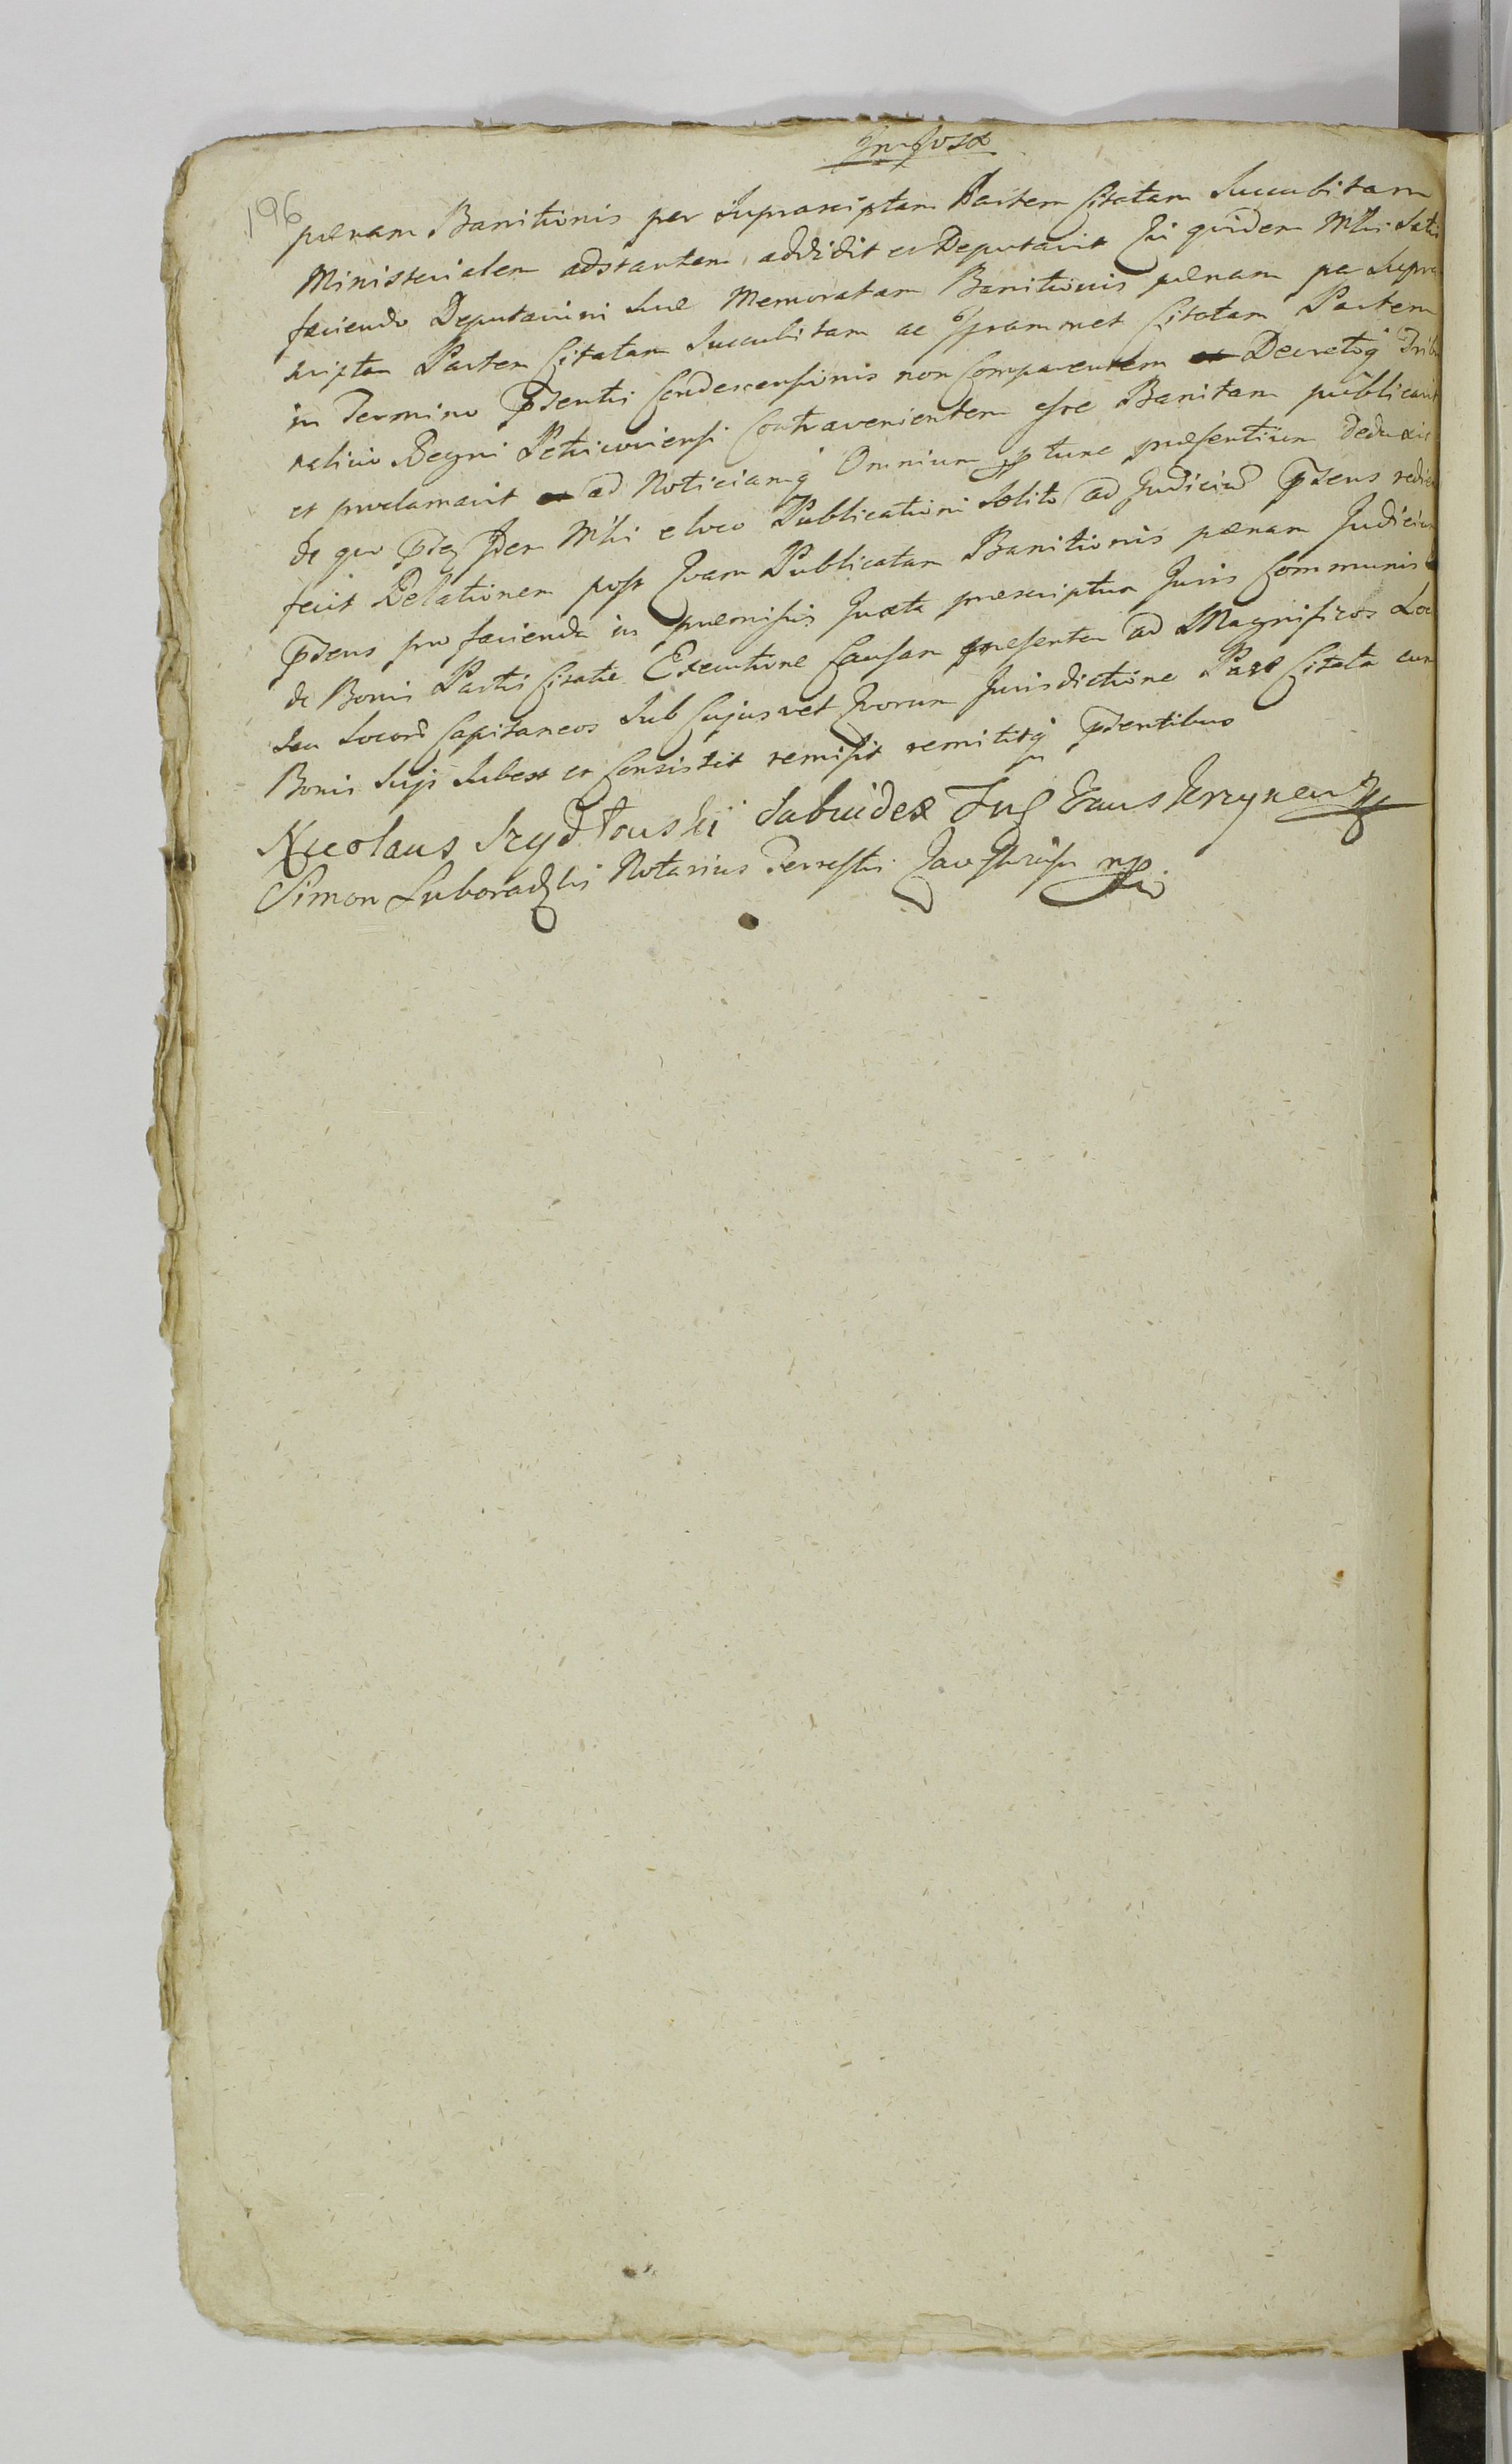 196
pænam Banitionis per Suprascriptam Partem Citatam Succubitam
Ministerialem adstantem addidit et Deputavit Qui quidem Mlis Satis
faciendo Deputationi Suæ Memoratam Banitionis pænam per Supra
scriptam Partem Citatam Succubitam ac ipsammet Citatam Partem
in Termino pñtentis Condescensionis non Comparentem Decretoq Tribu
nalitio Regni Petricoviensi Contravenientem esse Banitam publicavit
et proclamavit ad Noticiamq Omnium tunc præsentium deduxit
de quo Idem Mlis e loco Publicationi Solito ad Judiciũ pñtens rediens
fecit Relationem post Quam Publicatam Banitionis pænam Judicium
pñtens pro facienda in præmissis Juxta præscriptum Juris Communis
de Bonis Partis Citatæ Executione Causam præsentem ad Magnificos Loci
Seu Locorũ Capitaneos Sub Cujusvet Quorum Jurisdictione Pars Citata cum
Bonis Suis Subest et Consistit remisit remititq pñtentibus
Nicolaus Szydłouski Subiudex
Simon Luboradzki Notarius Terrestris